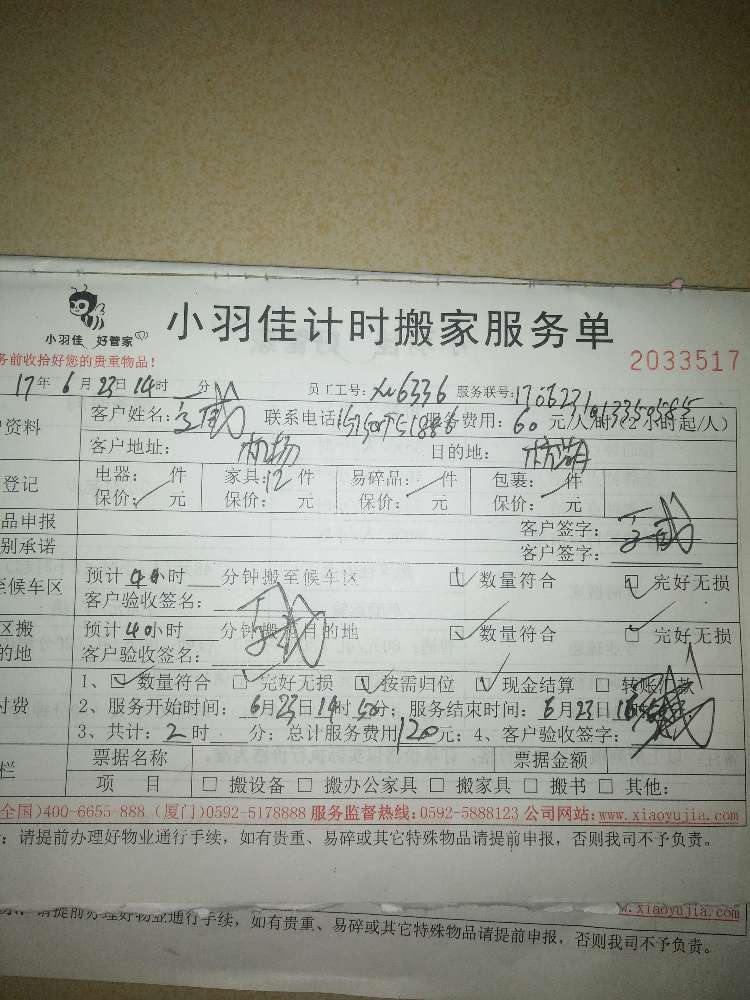 小羽佳 好管家
小羽佳计时搬家服务单
务前收拾好您的贵重物品!
2033517
17年6月23日14时 分 员工工号:XM6336 服务联号:
资料
客户姓名: 联系电话: 服务费用:60元/人/时(2小时起/人)
客户地址: 目的地:
登记
电器: 件 家具:12件 易碎品: 件 包裹: 件
保价: 元 保价: 元 保价: 元 保价: 元
品申报 客户签字:
别承诺 客户签字:
至候车区
预计40小时 分钟搬至候车区 数量符合 完好无损
客户验收签名:
区搬
的地
预计40小时 分钟搬至目的地 数量符合 完好无损
客户验收签名:
付费
1、数量符合 完好无损 按需归位 现金结算 转账汇款
2、服务开始时间:6月23日14时50分;服务结束时间:6月23日
3、共计:2时 分;总计服务费用120元;4、客户验收签字:
栏
票据名称 票据金额
项 目 搬设备 搬办公家具 搬家具 搬书 其他:
全国)400-6655-888 (厦门)0592-5178888 服务监督热线:0592-5888123 公司网站:www.xiaoyujia.com
:请提前办理好物业通行手续,如有贵重、易碎或其它特殊物品请提前申报,否则我司不予负责。
w.xiaoyujia.com
请提前办理好物业通行手续,如有贵重、易碎或其它特殊物品请提前申报,否则我司不予负责。